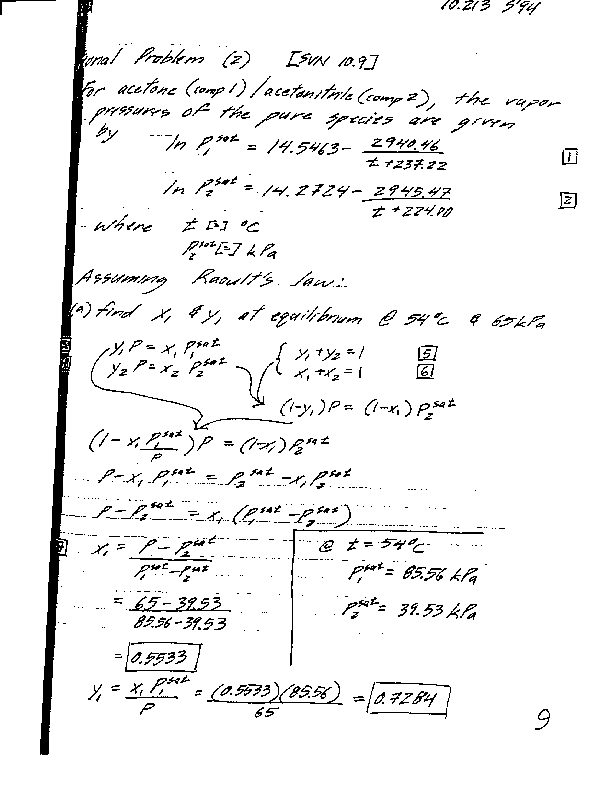 10.213 S'94
Problem (2) [SVN 10.9]
For acetone (comp 1) / acetonitrile (comp 2), the vapor
pressures of the pure species are given
by ln P₁ˢᵃᵗ = 14.5463 - 2940.46 / (t + 237.22) [1]
ln P₂ˢᵃᵗ = 14.2724 - 2945.47 / (t + 224.00) [2]
where t [=] °C
Pˢᵃᵗ [=] kPa
Assuming Raoult's law:
(a) find x₁ & y₁ at equilibrium @ 54°C & 65 kPa
y₁P = x₁ P₁ˢᵃᵗ { y₁ + y₂ = 1 [5]
y₂P = x₂ P₂ˢᵃᵗ x₁ + x₂ = 1 [6]
(1-y₁)P = (1-x₁) P₂ˢᵃᵗ
(1 - x₁ P₁ˢᵃᵗ / P) P = (1-x₁) P₂ˢᵃᵗ
P - x₁ P₁ˢᵃᵗ = P₂ˢᵃᵗ - x₁ P₂ˢᵃᵗ
P - P₂ˢᵃᵗ = x₁ (P₁ˢᵃᵗ - P₂ˢᵃᵗ)
x₁ = (P - P₂ˢᵃᵗ) / (P₁ˢᵃᵗ - P₂ˢᵃᵗ)
= (65 - 39.53) / (85.56 - 39.53)
= 0.5533
@ t = 54°C
P₁ˢᵃᵗ = 85.56 kPa
P₂ˢᵃᵗ = 39.53 kPa
y₁ = x₁ P₁ˢᵃᵗ / P = (0.5533)(85.56) / 65 = 0.7284
9